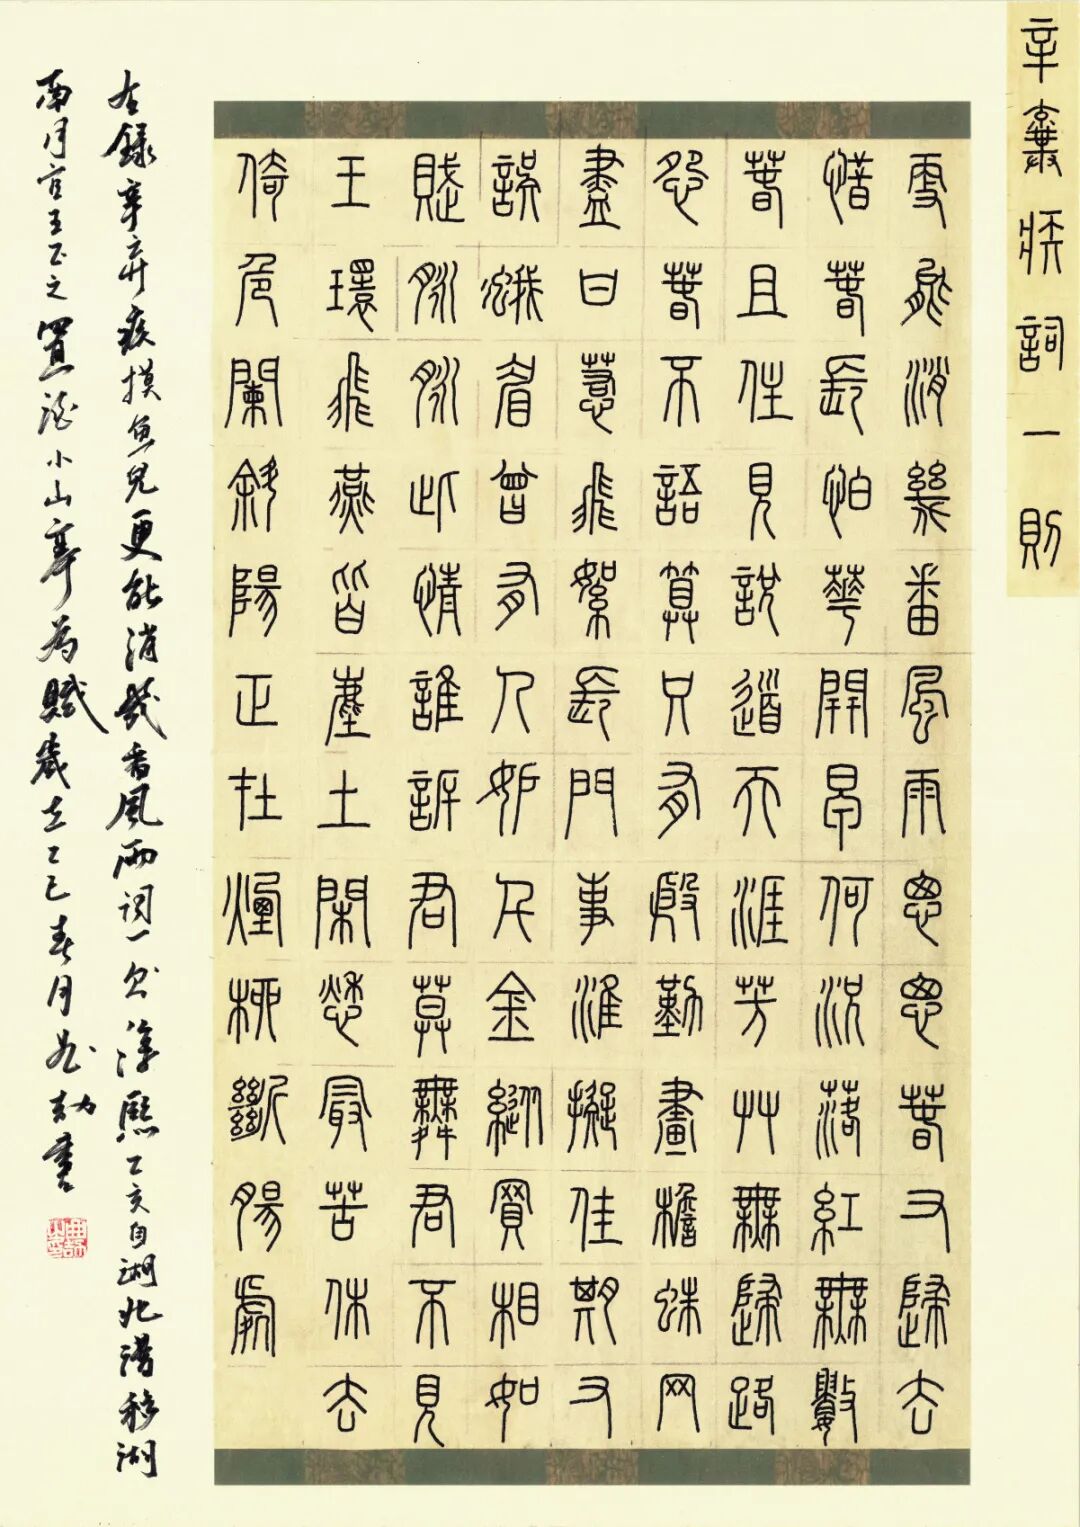 辛棄疾詞一則
更能消幾番風雨悤悤春又歸去
惜春長怕華開早何況落紅無數
春且住見說道天涯芳艸無歸路
怨春不語算只有殷勤畫檐蛛网
盡日惹飛絮長門事準擬佳期又
誤蛾眉曾有人妒千金縱買相如
賦脈脈此情誰訴君莫舞君不見
玉環飛燕皆塵土閑愁最苦休去
倚危闌斜陽正在煙柳斷腸處
右錄辛弃疾摸魚兒更能消幾番風雨詞一首淳熙己亥自湖北漕移湖
南同官王正之置酒小山亭為賦歲在乙巳春月書